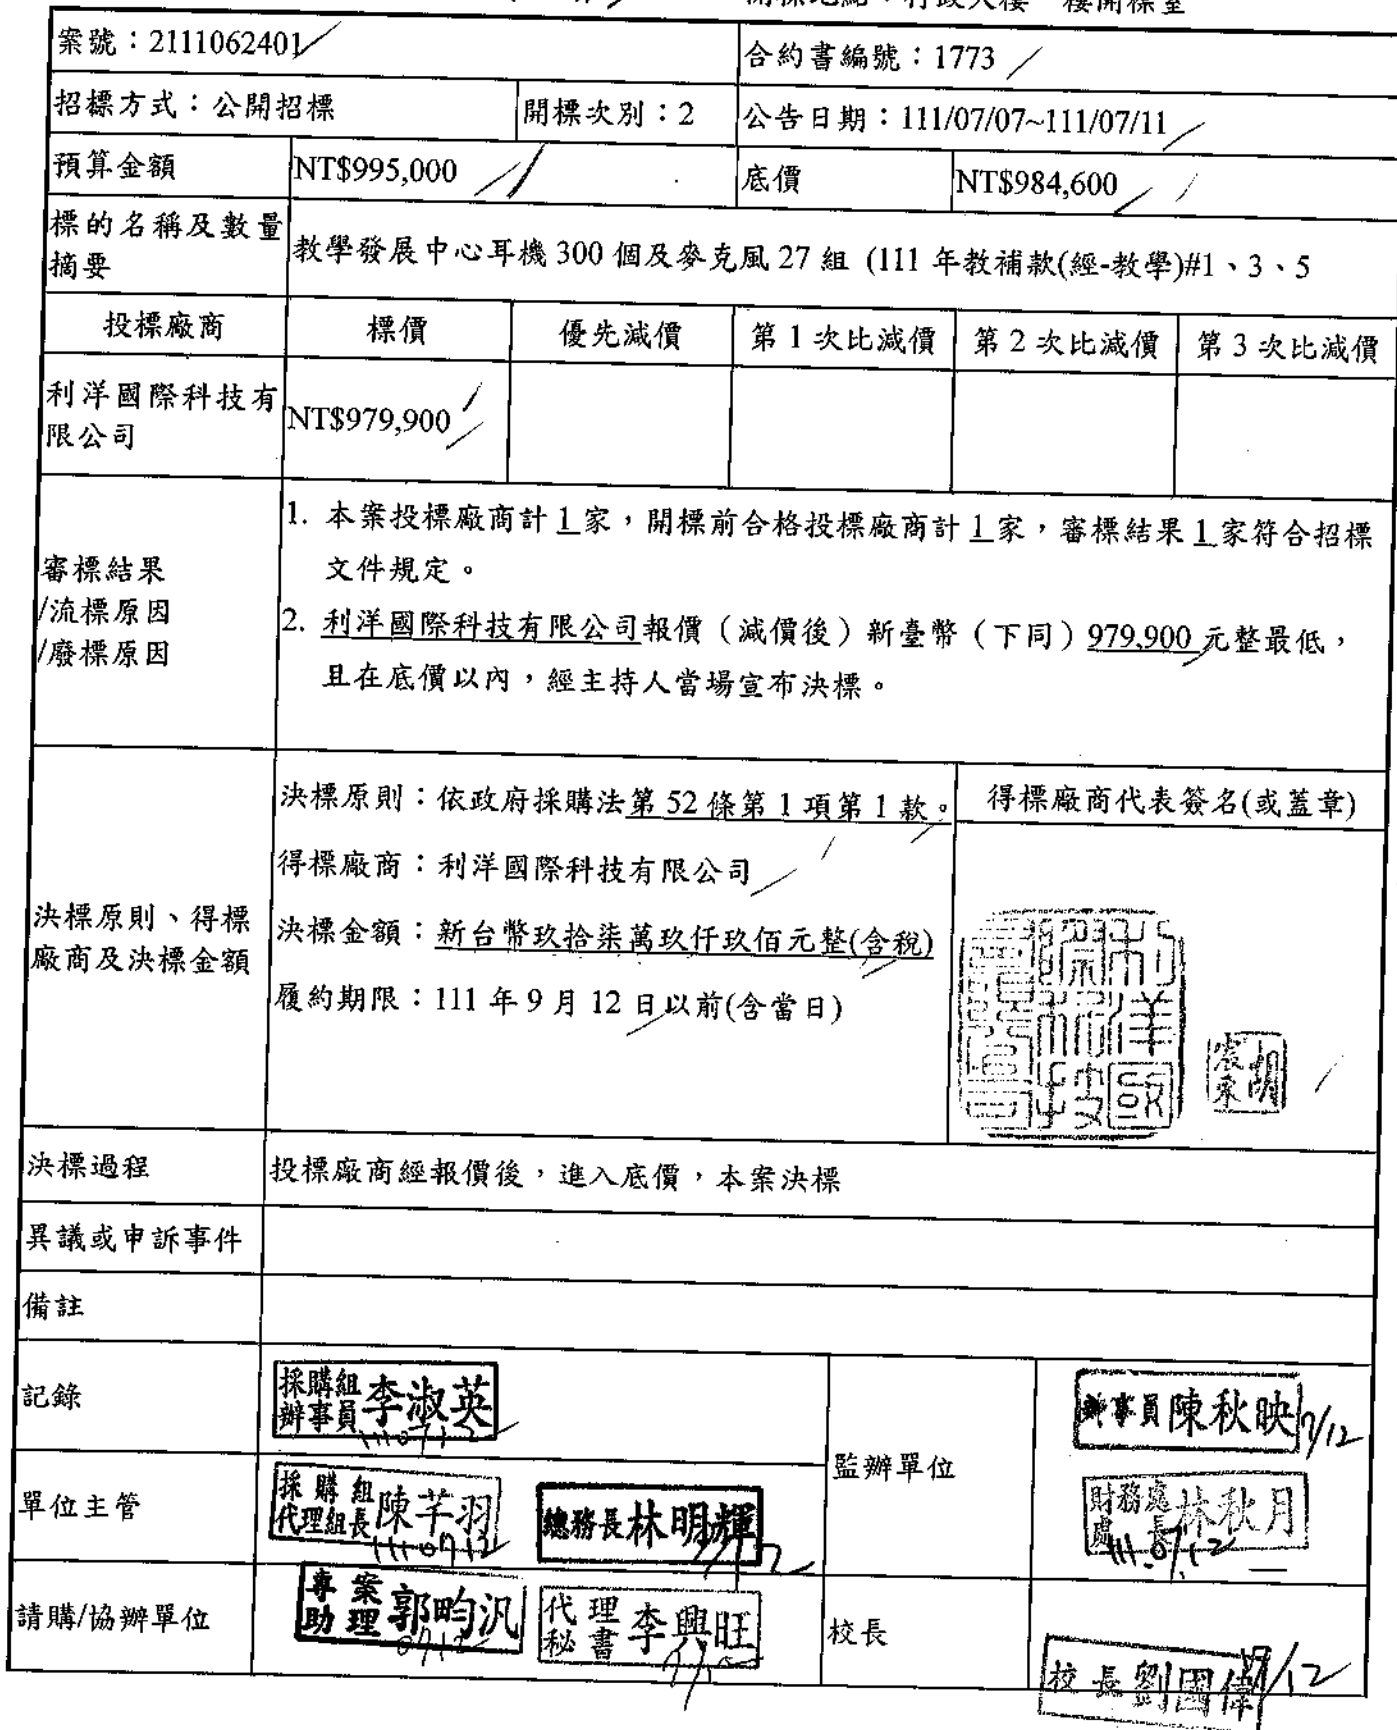 案號：2111062401
合約書編號：1773
招標方式：公開招標
開標次別：2
公告日期：111/07/07~111/07/11
預算金額
NT$995,000
底價
NT$984,600
標的名稱及數量
摘要
教學發展中心耳機 300 個及麥克風 27 組 (111 年教補款(經-教學)#1、3、5
投標廠商
標價
優先減價
第 1 次比減價
第 2 次比減價
第 3 次比減價
利洋國際科技有
限公司
NT$979,900
審標結果
/流標原因
/廢標原因
1. 本案投標廠商計 1 家，開標前合格投標廠商計 1 家，審標結果 1 家符合招標
文件規定。
2. 利洋國際科技有限公司報價（減價後）新臺幣（下同）979,900 元整最低，
且在底價以內，經主持人當場宣布決標。
決標原則、得標
廠商及決標金額
決標原則：依政府採購法第 52 條第 1 項第 1 款。
得標廠商：利洋國際科技有限公司
決標金額：新台幣玖拾柒萬玖仟玖佰元整(含稅)
履約期限：111 年 9 月 12 日以前(含當日)
得標廠商代表簽名(或蓋章)
決標過程
投標廠商經報價後，進入底價，本案決標
異議或申訴事件
備註
記錄
採購組
辦事員 李淑英
1110712
監辦單位
辦事員 陳秋映 7/12
單位主管
採購組
代理組長 陳芊羽
1110712
總務長 林明輝
財務處
處長 林秋月
111.07.12
請購/協辦單位
專案
助理 郭昀汎
0712
代理
秘書 李興旺
校長
校長 劉國偉 7/12